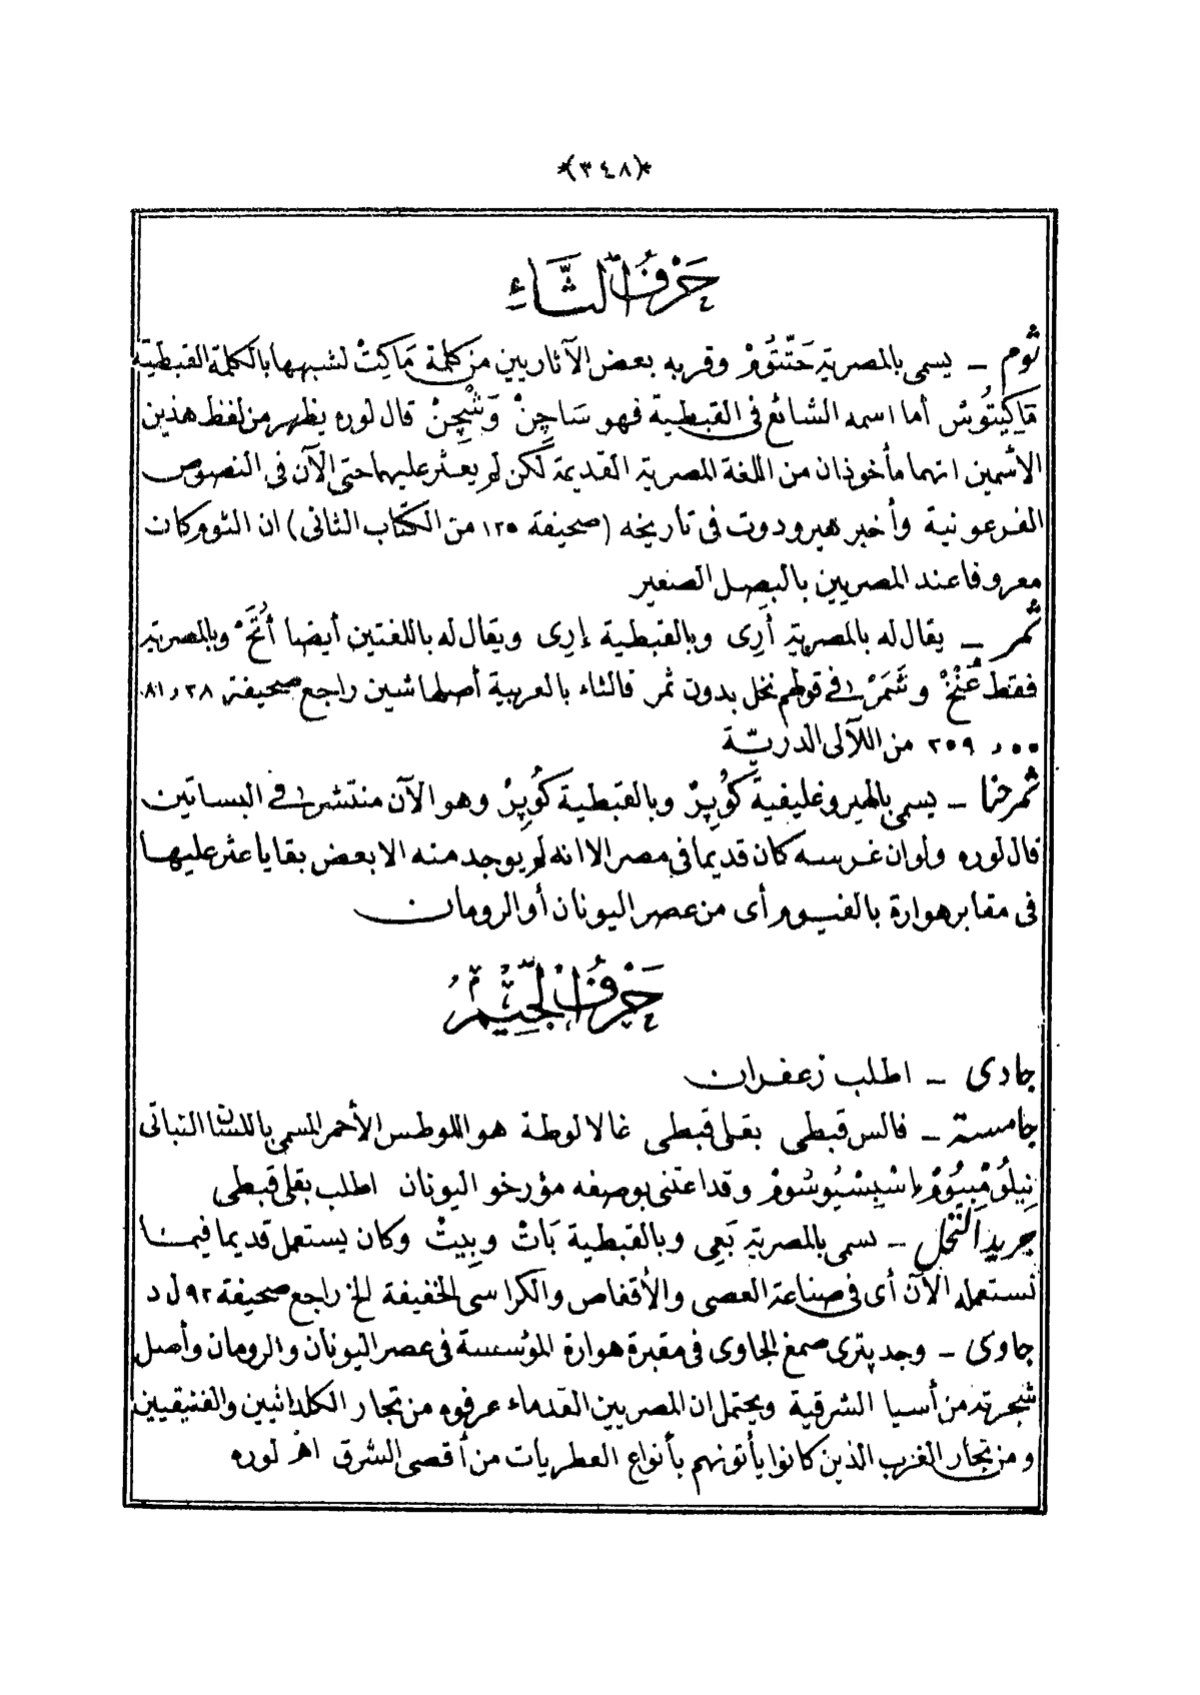 *(٣٤٨)*
حَرْفُ الثَّاءِ
ثوم ـ يسمى بالمصرية حَتّتُومْ وقربه بعض الآثاريين من كلمة مَاكِتْ لشبهها بالكلمة القبطية
مَاكِيتُوسْ أما اسمه الشائع في القبطية فهو سَاجِنْ وَشْجِنْ قال لوره يظهر من لفظ هذين
الاسمين انهما مأخوذان من اللغة المصرية القديمة لكن لم يعثر عليهما حتى الآن فى النصوص
الفرعونية وأخبر هيرودوت فى تاريخه (صحيفة ١٢٥ من الكتاب الثانى) ان الثوم كان
معروفا عند المصريين بالبصل الصغير
ثمر ـ يقال له بالمصرية أَرِى وبالقبطية إرِى ويقال له باللغتين أيضا أُتَحْ وبالمصرية
فقط عُنْخْ وشَمَرْ فى قولهم نخل بدون ثمر فالثاء بالعربية أصلها شين راجع صحيفة ٣٨ و ٨١
و ٢٥٩ من اللآلى الدريّة
ثمر حنا ـ يسمى بالهيروغليفية كُوپِرْ وبالقبطية كُوپِرْ وهو الآن منتشر فى البساتين
قال لوره ولو ان غرسه كان قديما فى مصر الا انه لم يوجد منه الا بعض بقايا عثر عليها
فى مقابر هوارة بالفيوم أى من عصر اليونان أو الرومان
حَرْفُ الجِّيْمِ
جادى ـ اطلب زعفران
جامسة ـ فالس قبطى بقلى قبطى غالا لوطة هو اللوطس الأحمر المسمى باللسان النباتى
نِيلُومْبِيُومْ اسْپِسْيُوسُومْ وقد اعتنى بوصفه مؤرخو اليونان اطلب بقلى قبطى
جريد النخل ـ يسمى بالمصرية بَعِى وبالقبطية بَاتْ وبِيتْ وكان يستعمل قديما فيما
نستعمله الآن أى فى صناعة العصى والأقفاص والكراسى الخفيفة الخ راجع صحيفة ٩٢ ل د
جاوى ـ وجد پترى صمغ الجاوى فى مقبرة هوارة المؤسسة فى عصر اليونان والرومان وأصل
شجرته من أسيا الشرقية ويحتمل ان المصريين القدماء عرفوه من تجار الكلدانيين والفنيقيين
ومن تجار الغرب الذين كانوا يأتونهم بأنواع العطريات من أقصى الشرق اهـ لوره